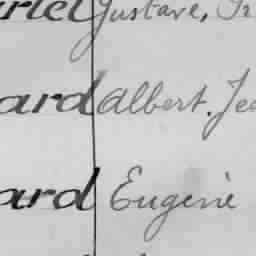 riel Gustave, Fr
ard Albert. Jea
ard Eugène